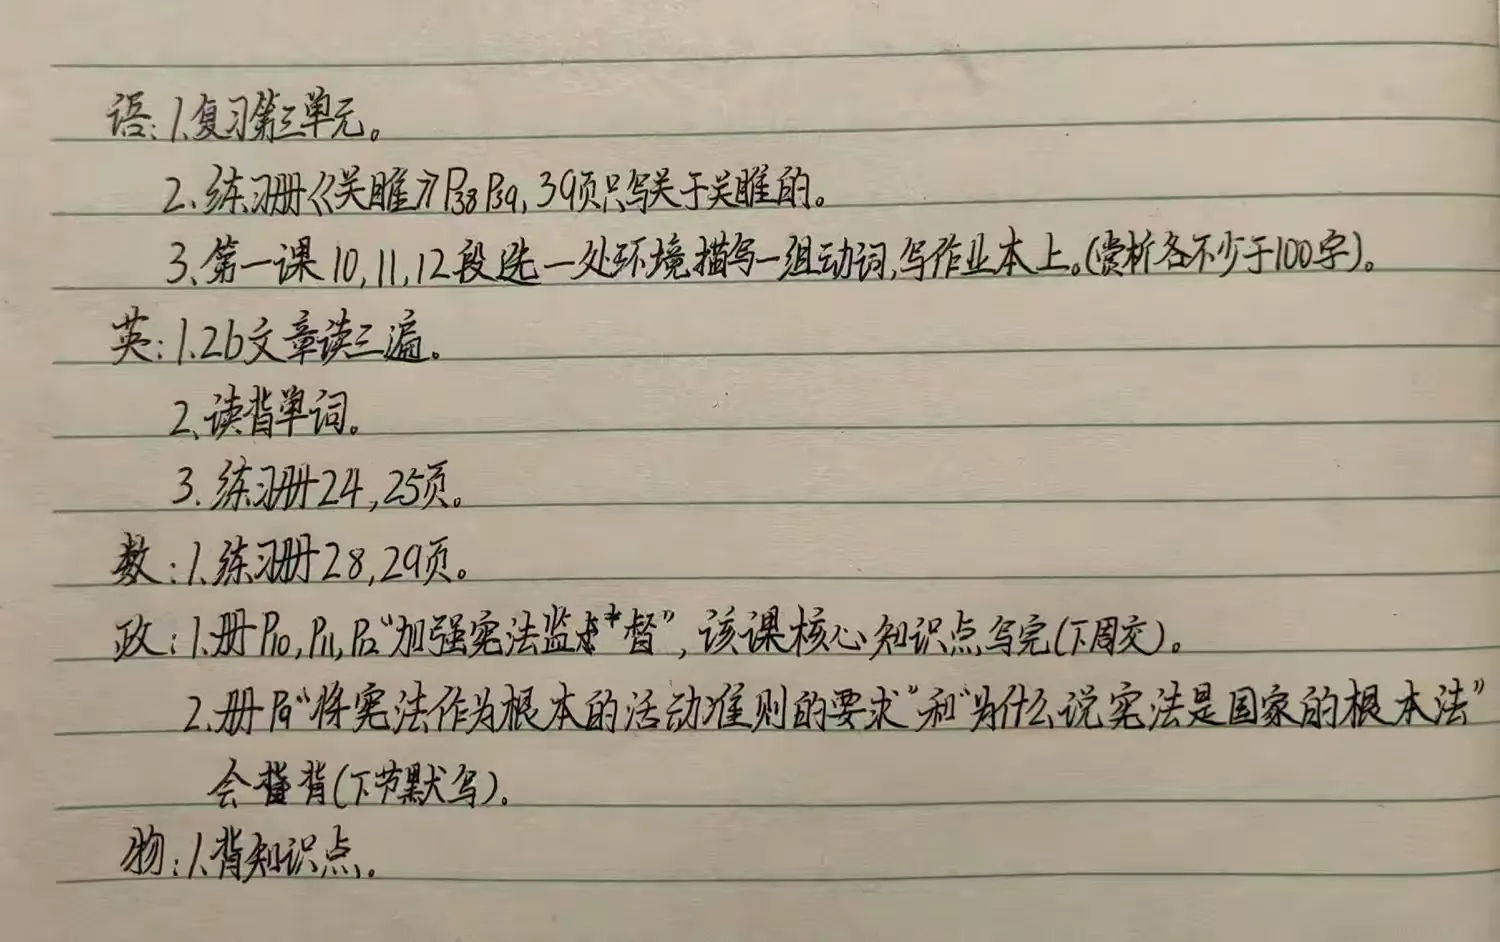 语:1.复习第三单元。
2.练习册《关雎》P38 P39,39页只写关于关雎的。
3.第一课10,11,12段选一处环境描写一组动词,写作业本上。(赏析各不少于100字)。
英:1.2b文章读三遍。
2.读背单词。
3.练习册24,25页。
数:1.练习册28,29页。
政:1.册P10,P11,P12“加强宪法监督”,该课核心知识点写完(下周交)。
2.册P9“将宪法作为根本的活动准则的要求”和“为什么说宪法是国家的根本法”
会背(下节默写)。
物:1.背知识点。